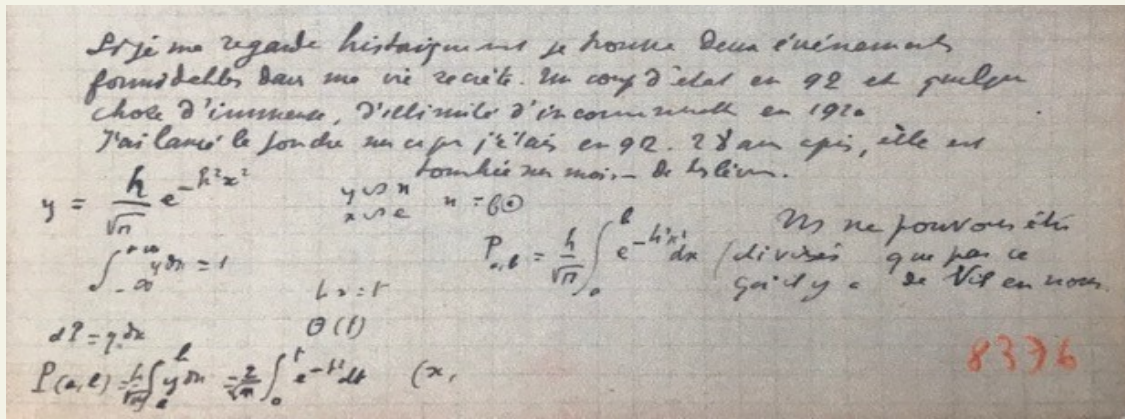 Si je me regarde historiquement je trouve deux événements
formidables dans ma vie secrète. Un coup d'état en 92 et quelque
chose d'immense, d'illimité d'incommensurable en 1920
J'ai lancé la foudre sur ce que j'étais en 92. 28 ans après, elle est
tombée sur moi — de tes lèvres.
y = h/√π e^{-h²x²}
∫_{-∞}^{+∞} y dx = 1
dP = y dx
P(a,b) = h/√π ∫_a^b y dx = 2/√π ∫_0^t e^{-t²} dt (x,
hx = t
θ(t)
P_{a,b} = h/√π ∫_a^b e^{-h²x²} dx
Ns ne pouvons être
divisés que par ce
qu'il y a de Vil en nous.
8376